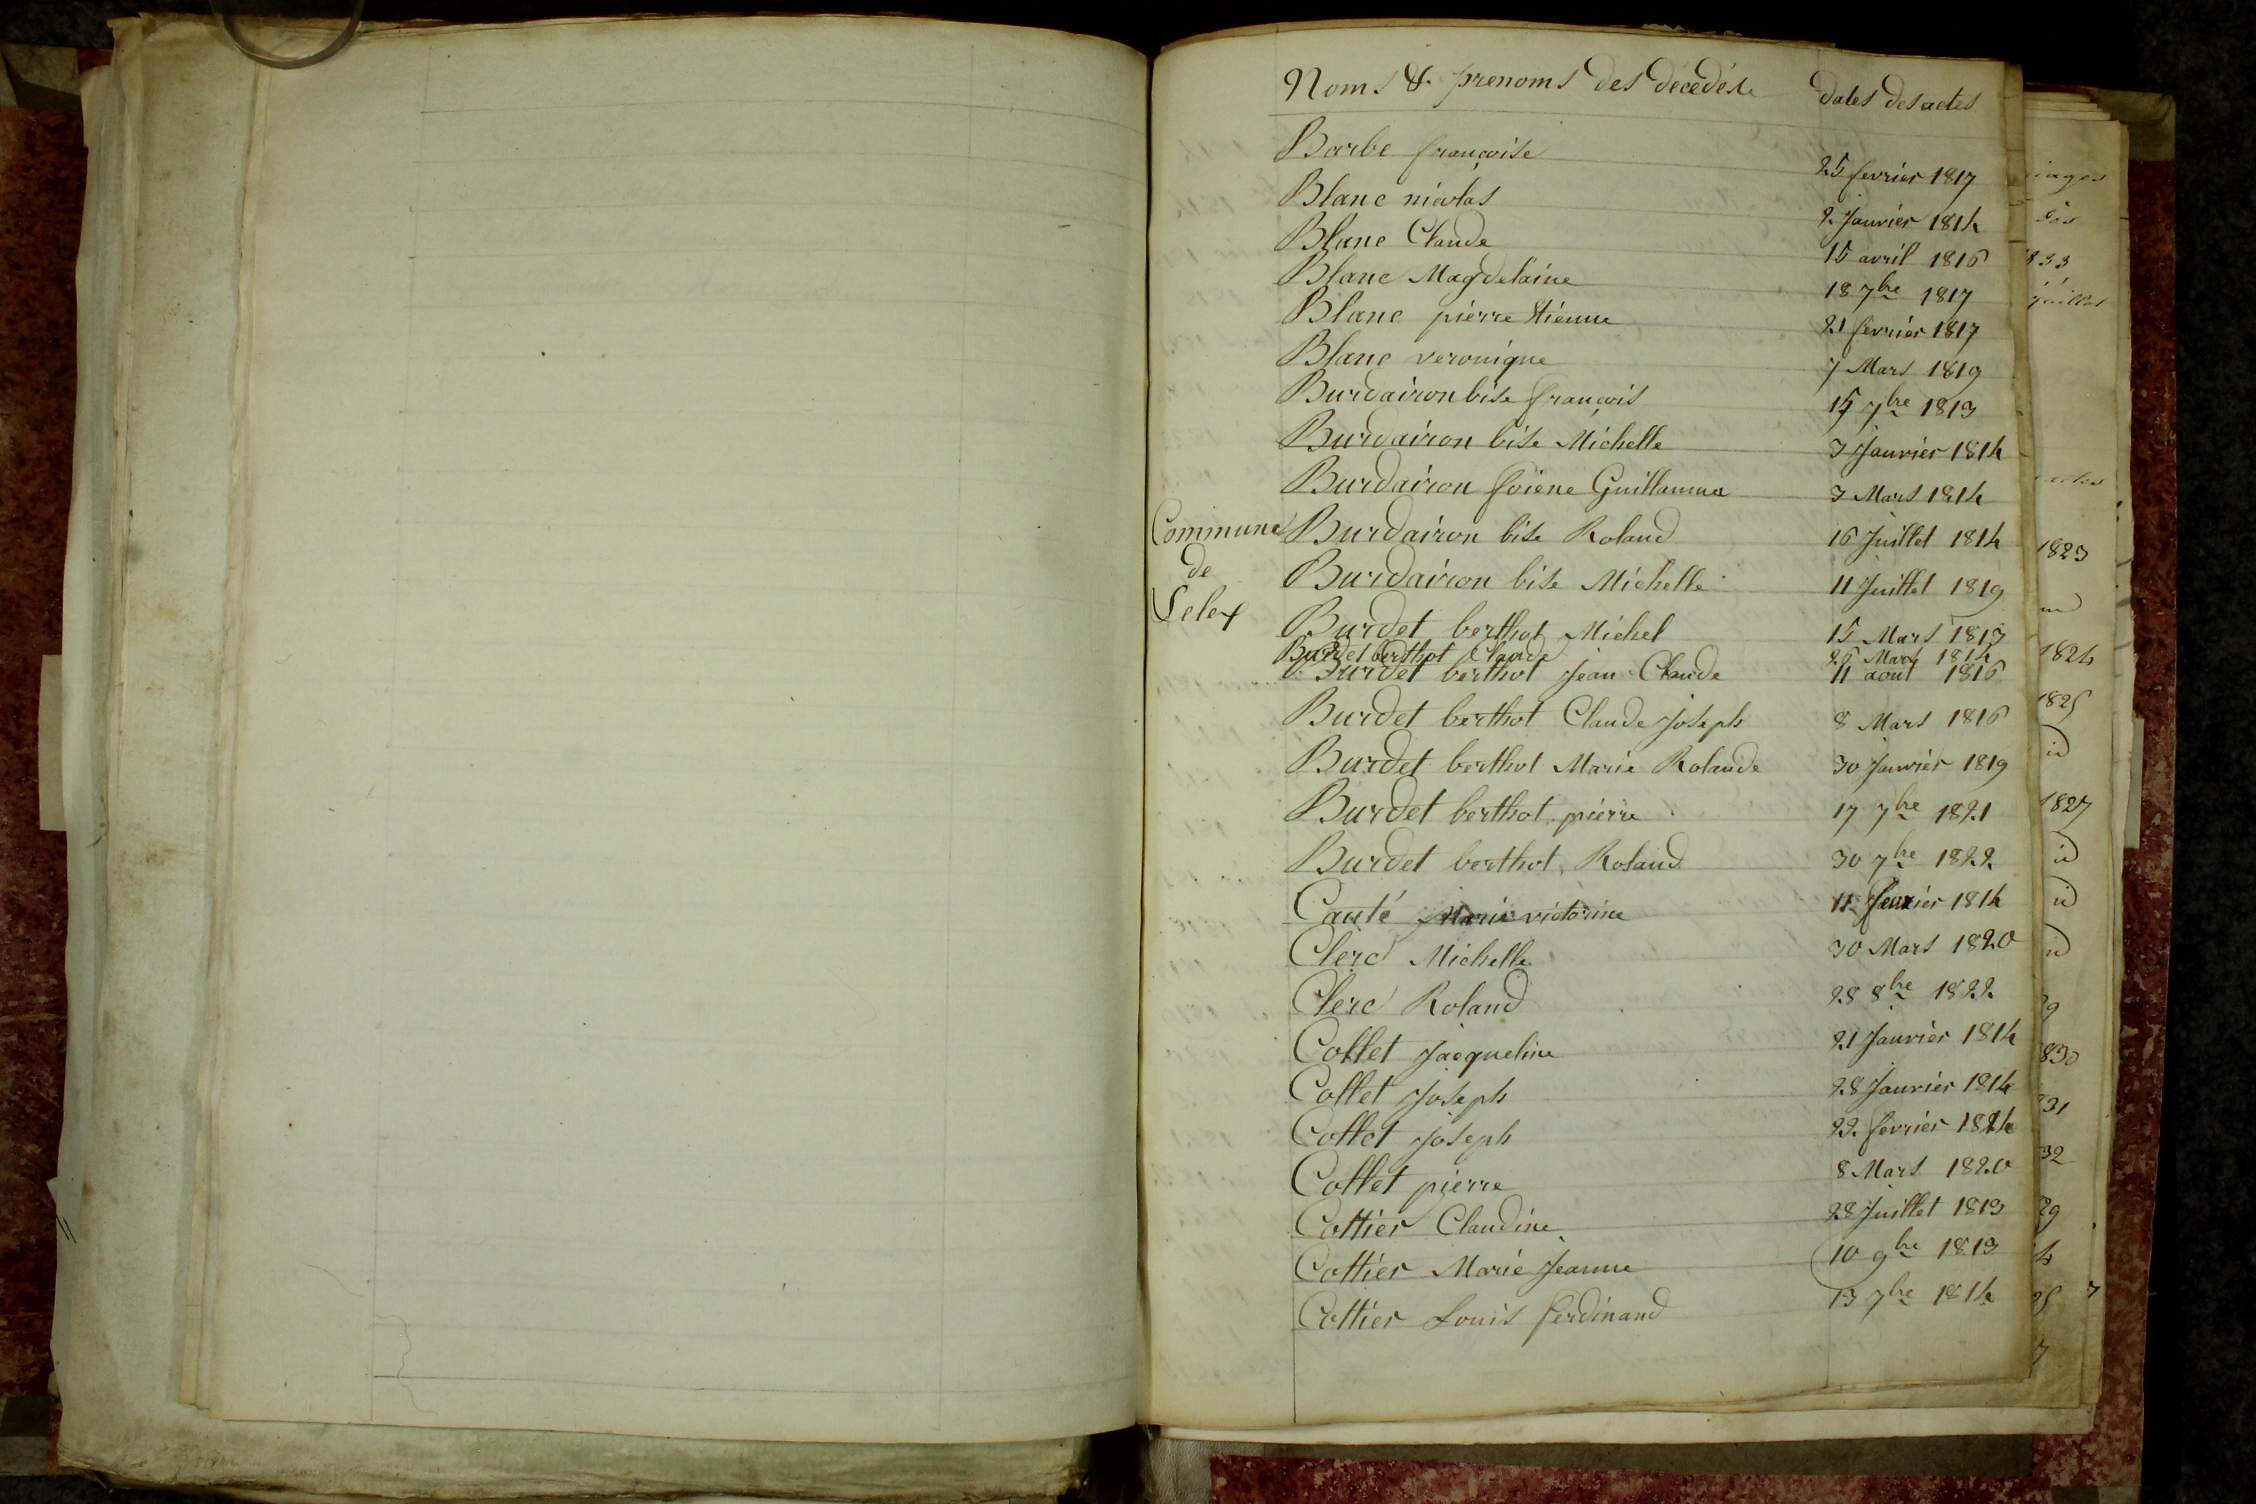 Noms & prenoms des décédés dates des actes
Barbe françoise 25 fevrier 1817
Blanc nicolas 2 Janvier 1814
Blanc Claude 15 avril 1816
Blanc Magdelaine 18 7bre 1817
Blanc pierre Etienne 21 fevrier 1817
Blanc veronique 7 Mars 1819
Burdairon bise françois 7bre 1813
Burdairon bise Michelle 3 Janvier 1814
Burdairon Guillaume 3 Mars 1814
Burdairon bise Roland 16 Juillet 1814
Commune
de
Lelex
Burdairon bise Michelle 11 Juillet 1819
Burdet berthot Michel 15 Mars 1813
Burdet berthot Claude 26 Mars 1814
Burdet berthot Jean Claude 11 aout 1816
Burdet berthot Claude Joseph 8 Mars 1816
Burdet berthot Marie Rolande 30 Janvier 1819
Burdet berthot pierre 17 7bre 1821
Burdet berthot Roland 30 7bre 1822
Cauté Marie victorine 11 fevrier 1814
Clerc Michelle 30 Mars 1820
Clerc Roland 28 8bre 1822
Collet Jacqueline 21 Janvier 1814
Collet Joseph 28 Janvier 1814
Collet Joseph 22 fevrier 1814
Collet pierre 8 Mars 1820
Cottier Claudine 28 Juillet 1813
Cottier Marie Jeanne 10 9bre 1813
Cottier Louis ferdinand 13 7bre 1814
1823
1824
1825
id
1827
id
id
id